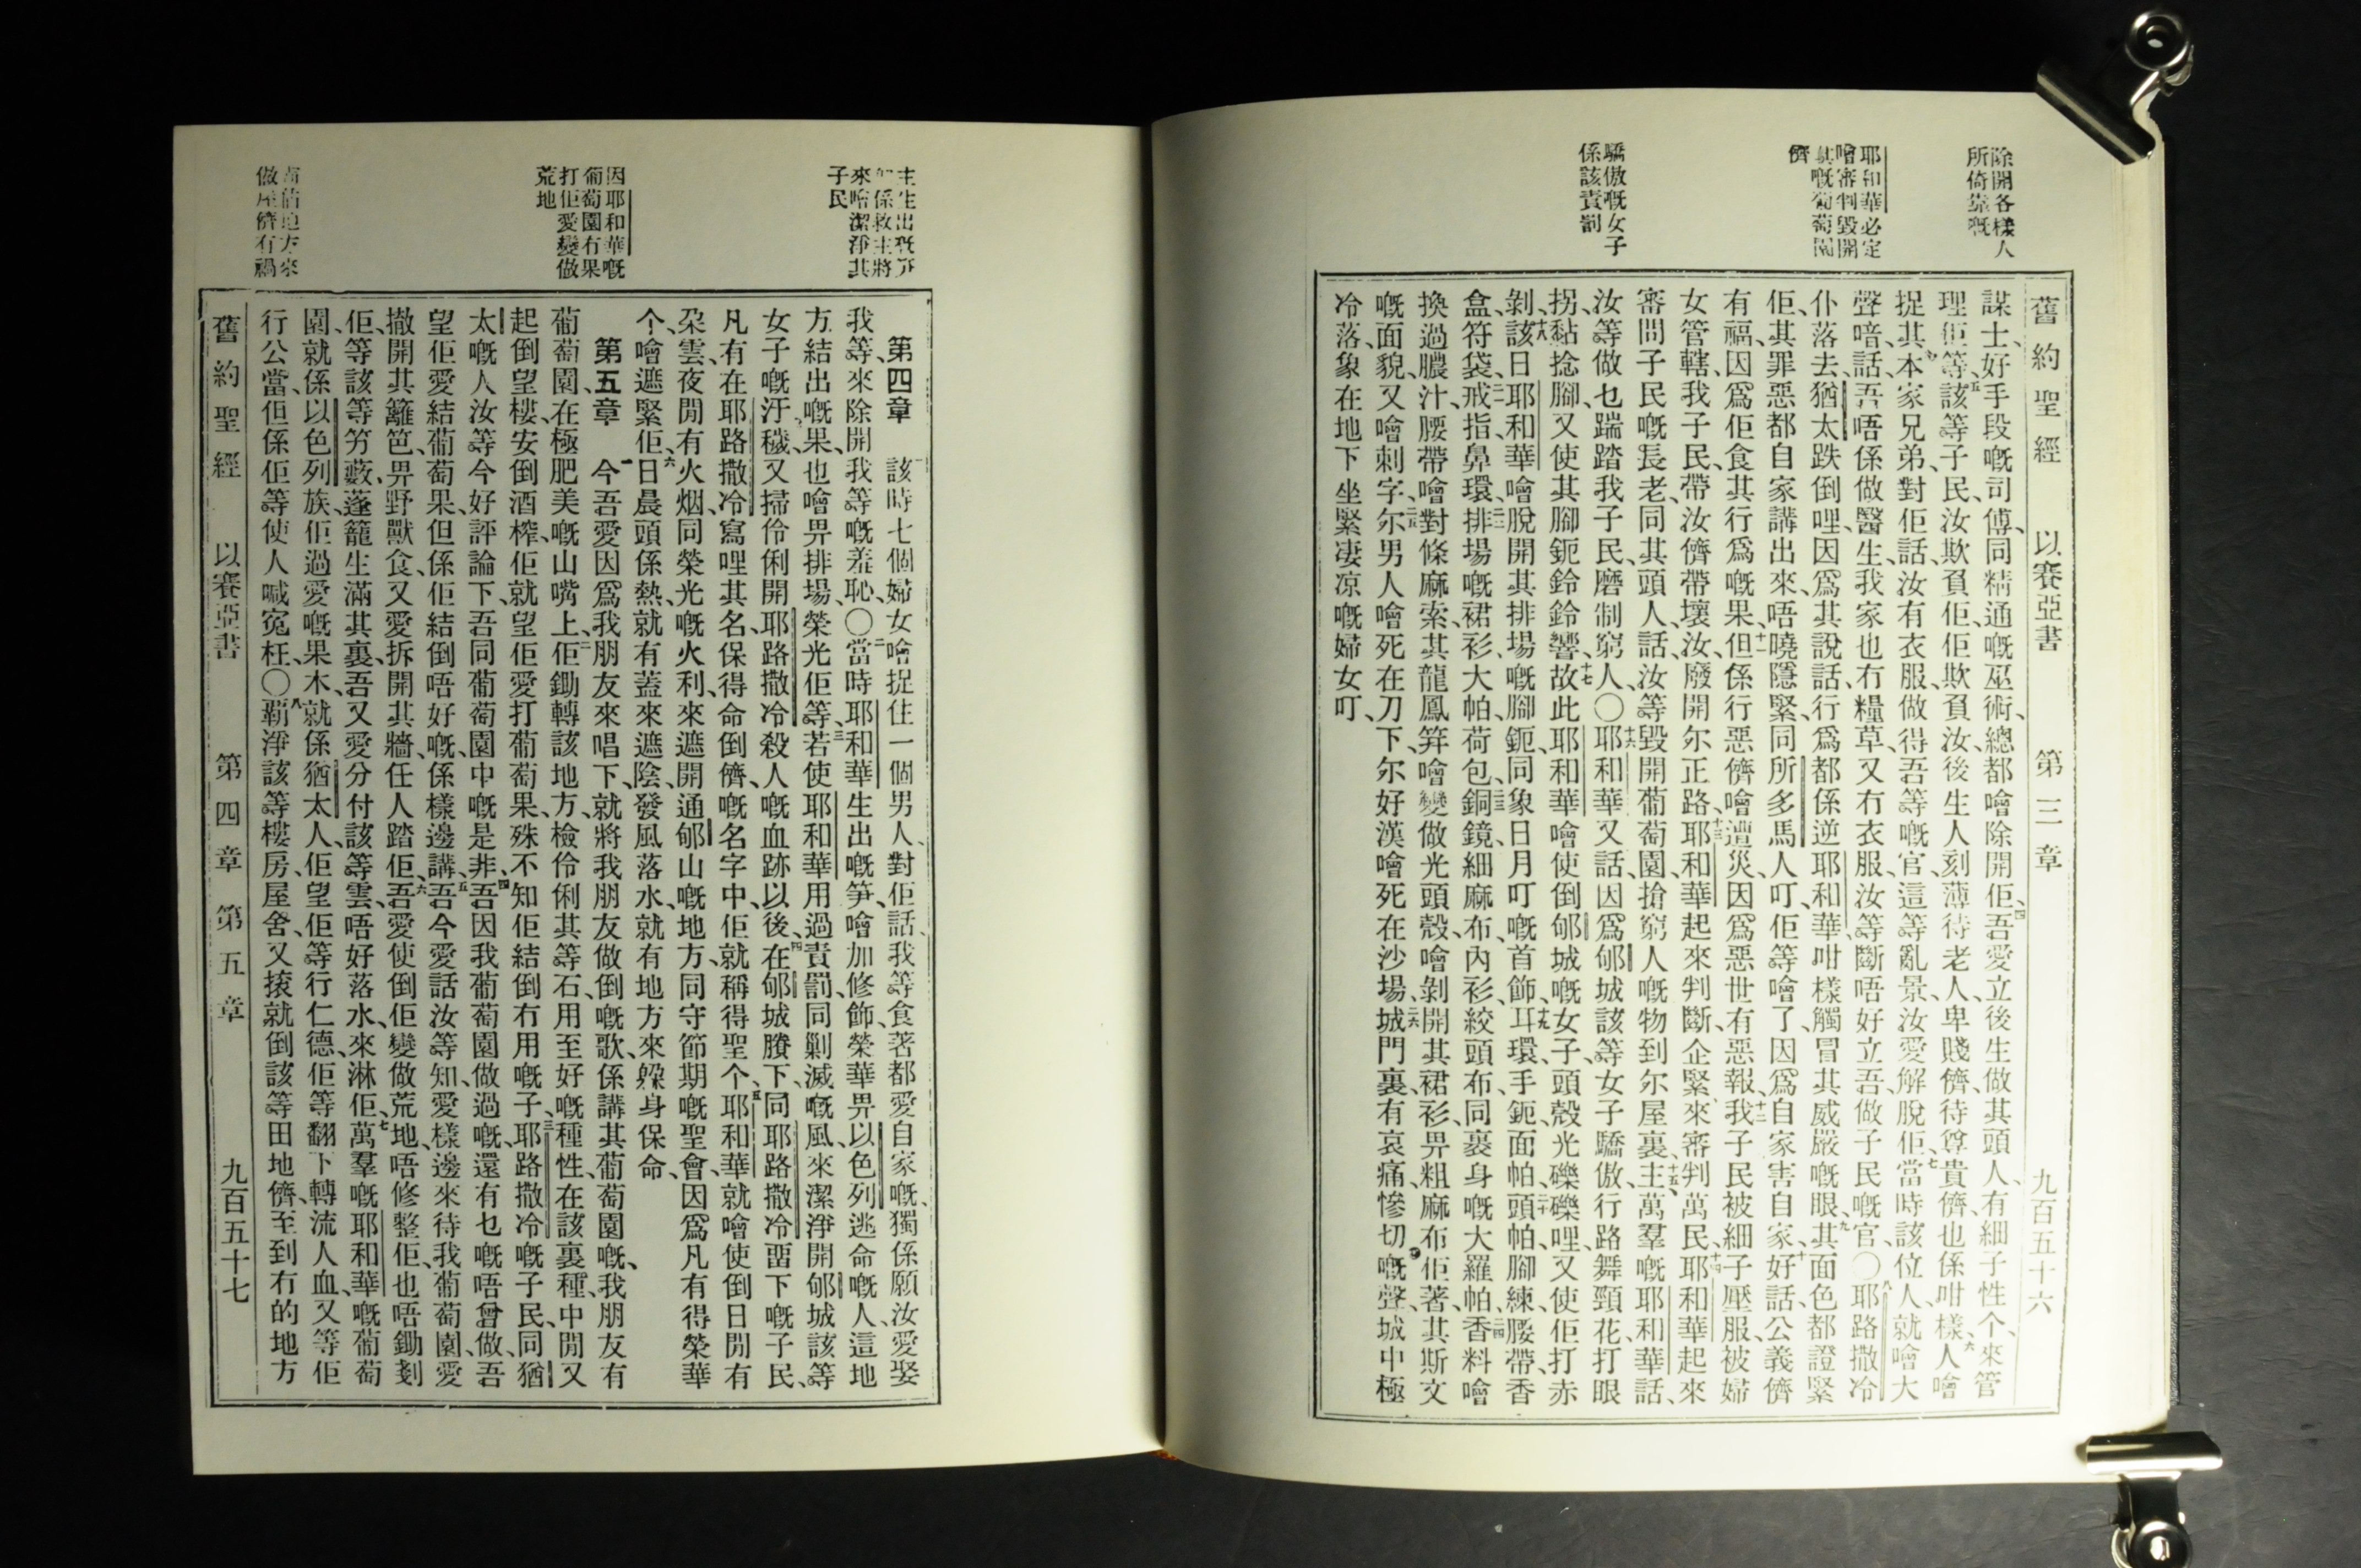 舊約聖經 以賽亞書 第三章 九百五十六
除開各樣人
所倚靠嘅
耶和華必定
噲審判毀開
其嘅葡萄園
儕
驕傲嘅女子
係該責罰
謀士、好手段嘅司傅、同精通嘅巫術、總都噲除開佢、四吾愛立後生做其頭人、有細子性个、來管
理佢等、五該等子民、汝欺負佢、佢欺負汝、後生人刻薄待老人、卑賤儕待尊貴儕、也係咁樣、六人噲
捉其本家兄弟、對佢話、汝有衣服、做得吾等嘅官、這等亂景、汝愛解脫佢、七當時該位人、就噲大
聲喑、話、吾唔係做醫生、我家也冇糧草、又冇衣服、汝等斷唔好立吾做子民嘅官、〇八耶路撒冷
仆落去、猶太跌倒哩、因爲其說話、行爲、都係逆耶和華、咁樣觸冒其威嚴嘅眼、九其面色都證緊
佢、其罪惡都自家講出來、唔曉隱緊、同所多馬人叮、佢等噲了、因爲自家害自家、十好話、公義儕
有福、因爲佢食其行爲嘅果、十一但係行惡儕噲遭災、因爲惡世有惡報、十二我子民被細子壓服、被婦
女管轄、我子民、帶汝儕帶壞汝、廢開尔正路、十三耶和華起來判斷、企緊來審判萬民、十四耶和華起來
審問子民嘅長老、同其頭人、話、汝等毀開葡萄園、搶窮人嘅物到尔屋裏、十五主萬羣嘅耶和華話、
汝等做乜踹踏我子民、磨制窮人、〇十六耶和華又話、因爲郇城該等女子驕傲、行路舞頸花、打眼
拐、黏捻腳、又使其腳鈪鈴鈴響、十七故此耶和華噲使倒郇城嘅女子、頭殼光礫礫哩、又使佢打赤
剝、十八該日耶和華噲脫開其排場嘅腳鈪、同象日月叮嘅首飾、十九耳環、手鈪、面帕、二十頭帕、腳練、腰帶、香
盒、符袋、二一戒指、鼻環、二二排場嘅裙衫、大帕、荷包、二三銅鏡、細麻布、內衫、絞頭布、同裹身嘅大羅帕、二四香料噲
換過膿汁、腰帶噲對條麻索、其龍鳳笄噲變做光頭殼、噲剝開其裙衫、畀粗麻布佢著、其斯文
嘅面貌、又噲刺字、二五尔男人噲死在刀下、尔好漢噲死在沙場、二六城門裏有哀痛慘切嘅聲、城中極
冷落、象在地下坐緊凄凉嘅婦女叮、
主生出嘅芽
係救主將
來噲潔淨其
子民
因耶和華嘅
葡萄園冇果
打佢愛變做
荒地
霸佔地方來
做屋儕有禍
第四章 一該時七個婦女噲捉住一個男人、對佢話、我等食著都愛自家嘅、獨係願汝愛娶
我等、來除開我等嘅羞恥、〇二當時耶和華生出嘅笋、噲加修飾榮華、畀以色列逃命嘅人、這地
方結出嘅果、也噲畀排場榮光佢等、三若使耶和華用過責罰、同剿滅嘅風、來潔淨開郇城該等
女子嘅汙穢、又掃伶俐開耶路撒冷、殺人嘅血跡、以後、四在郇城賸下、同耶路撒冷畱下嘅子民、
凡有在耶路撒冷寫哩其名、保得命倒儕嘅名字中、佢就稱得聖个、五耶和華就噲使倒日閒有
朶雲、夜閒有火烟、同榮光嘅火利、來遮開通郇山嘅地方、同守節期嘅聖會、因爲凡有得榮華
个、噲遮緊佢、六日晨頭係熱、就有蓋來遮陰、發風落水、就有地方來躱身保命、
第五章 一今吾愛因爲我朋友來唱下、就將我朋友做倒嘅歌、係講其葡萄園嘅、我朋友有
葡萄園、在極肥美嘅山嘴上、二佢鋤轉該地方、檢伶俐其等石、用至好嘅種性、在該裏種、中閒又
起倒望樓、安倒酒榨、佢就望佢愛打葡萄果、殊不知佢結倒冇用嘅子、三耶路撒冷嘅子民、同猶
太嘅人、汝等今好評論下、吾同葡萄園中嘅是非、四吾因我葡萄園做過嘅、還有乜嘅唔曾做、吾
望佢愛結葡萄果、但係佢結倒唔好嘅、係樣邊講、五吾今愛話汝等知、愛樣邊來待我葡萄園、愛
撤開其籬笆、畀野獸食、又愛拆開其牆、任人踏佢、六吾愛使倒佢變做荒地、唔修整佢、也唔鋤剗
佢、等該等竻藪、蓬籠生滿其裏、吾又愛分付該等雲、唔好落水來淋佢、七萬羣嘅耶和華嘅葡萄
園、就係以色列族、佢過愛嘅果木、就係猶太人、佢望佢等行仁德、佢等翻下轉流人血、又等佢
行公當、但係佢等使人喊冤枉、〇八覇淨該等樓房、屋舍、又揼就倒該等田地儕、至到冇的地方
舊約聖經 以賽亞書 第四章 第五章 九百五十七